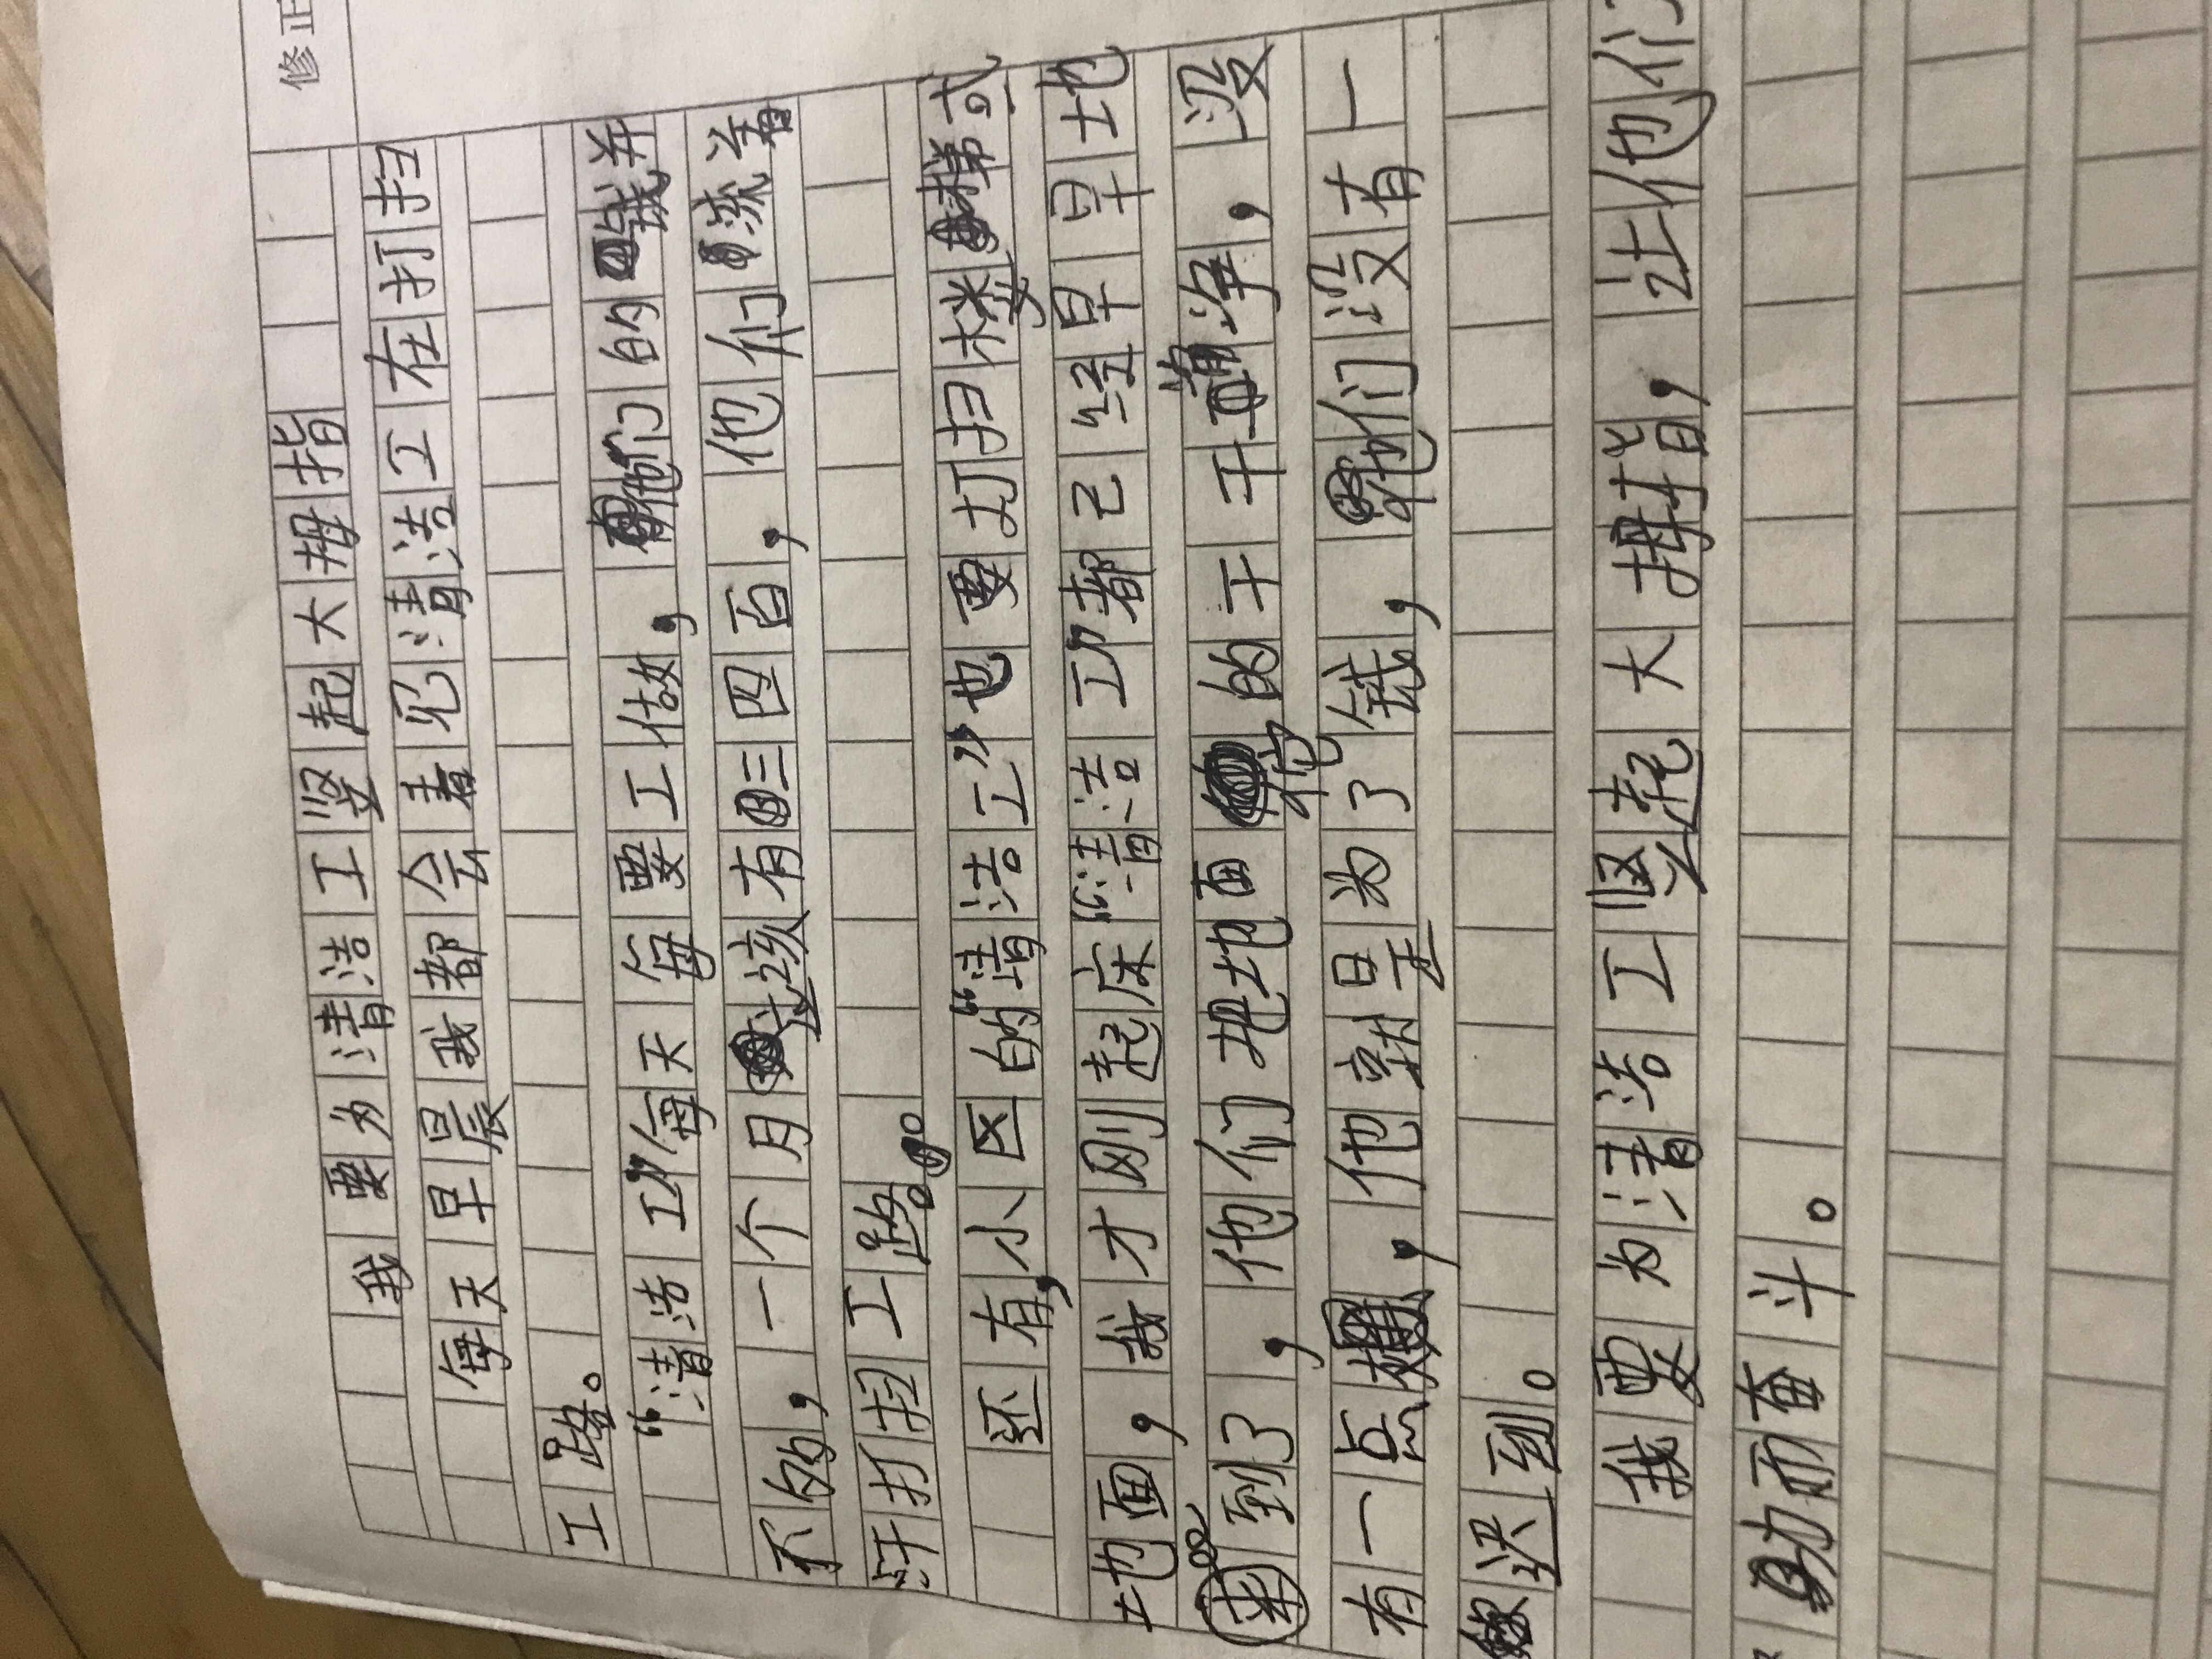 修正
我要为清洁工竖起大拇指
每天早晨我都会看见清洁工在打扫
工路。
“清洁工”每天每要工做，他们的钱并
不的，一个月应该有三四百，他们流着
汗打扫工路。
还有，小区的“清洁工”也要打扫楼梯或
地面，我才刚起床“清洁工”都已经早早地
来到了，他们把地面的干干净净，没
有一点，他就是为了钱，他们没有一
迟到。
我要为清洁工竖起大拇指，让他们
力而奋斗。